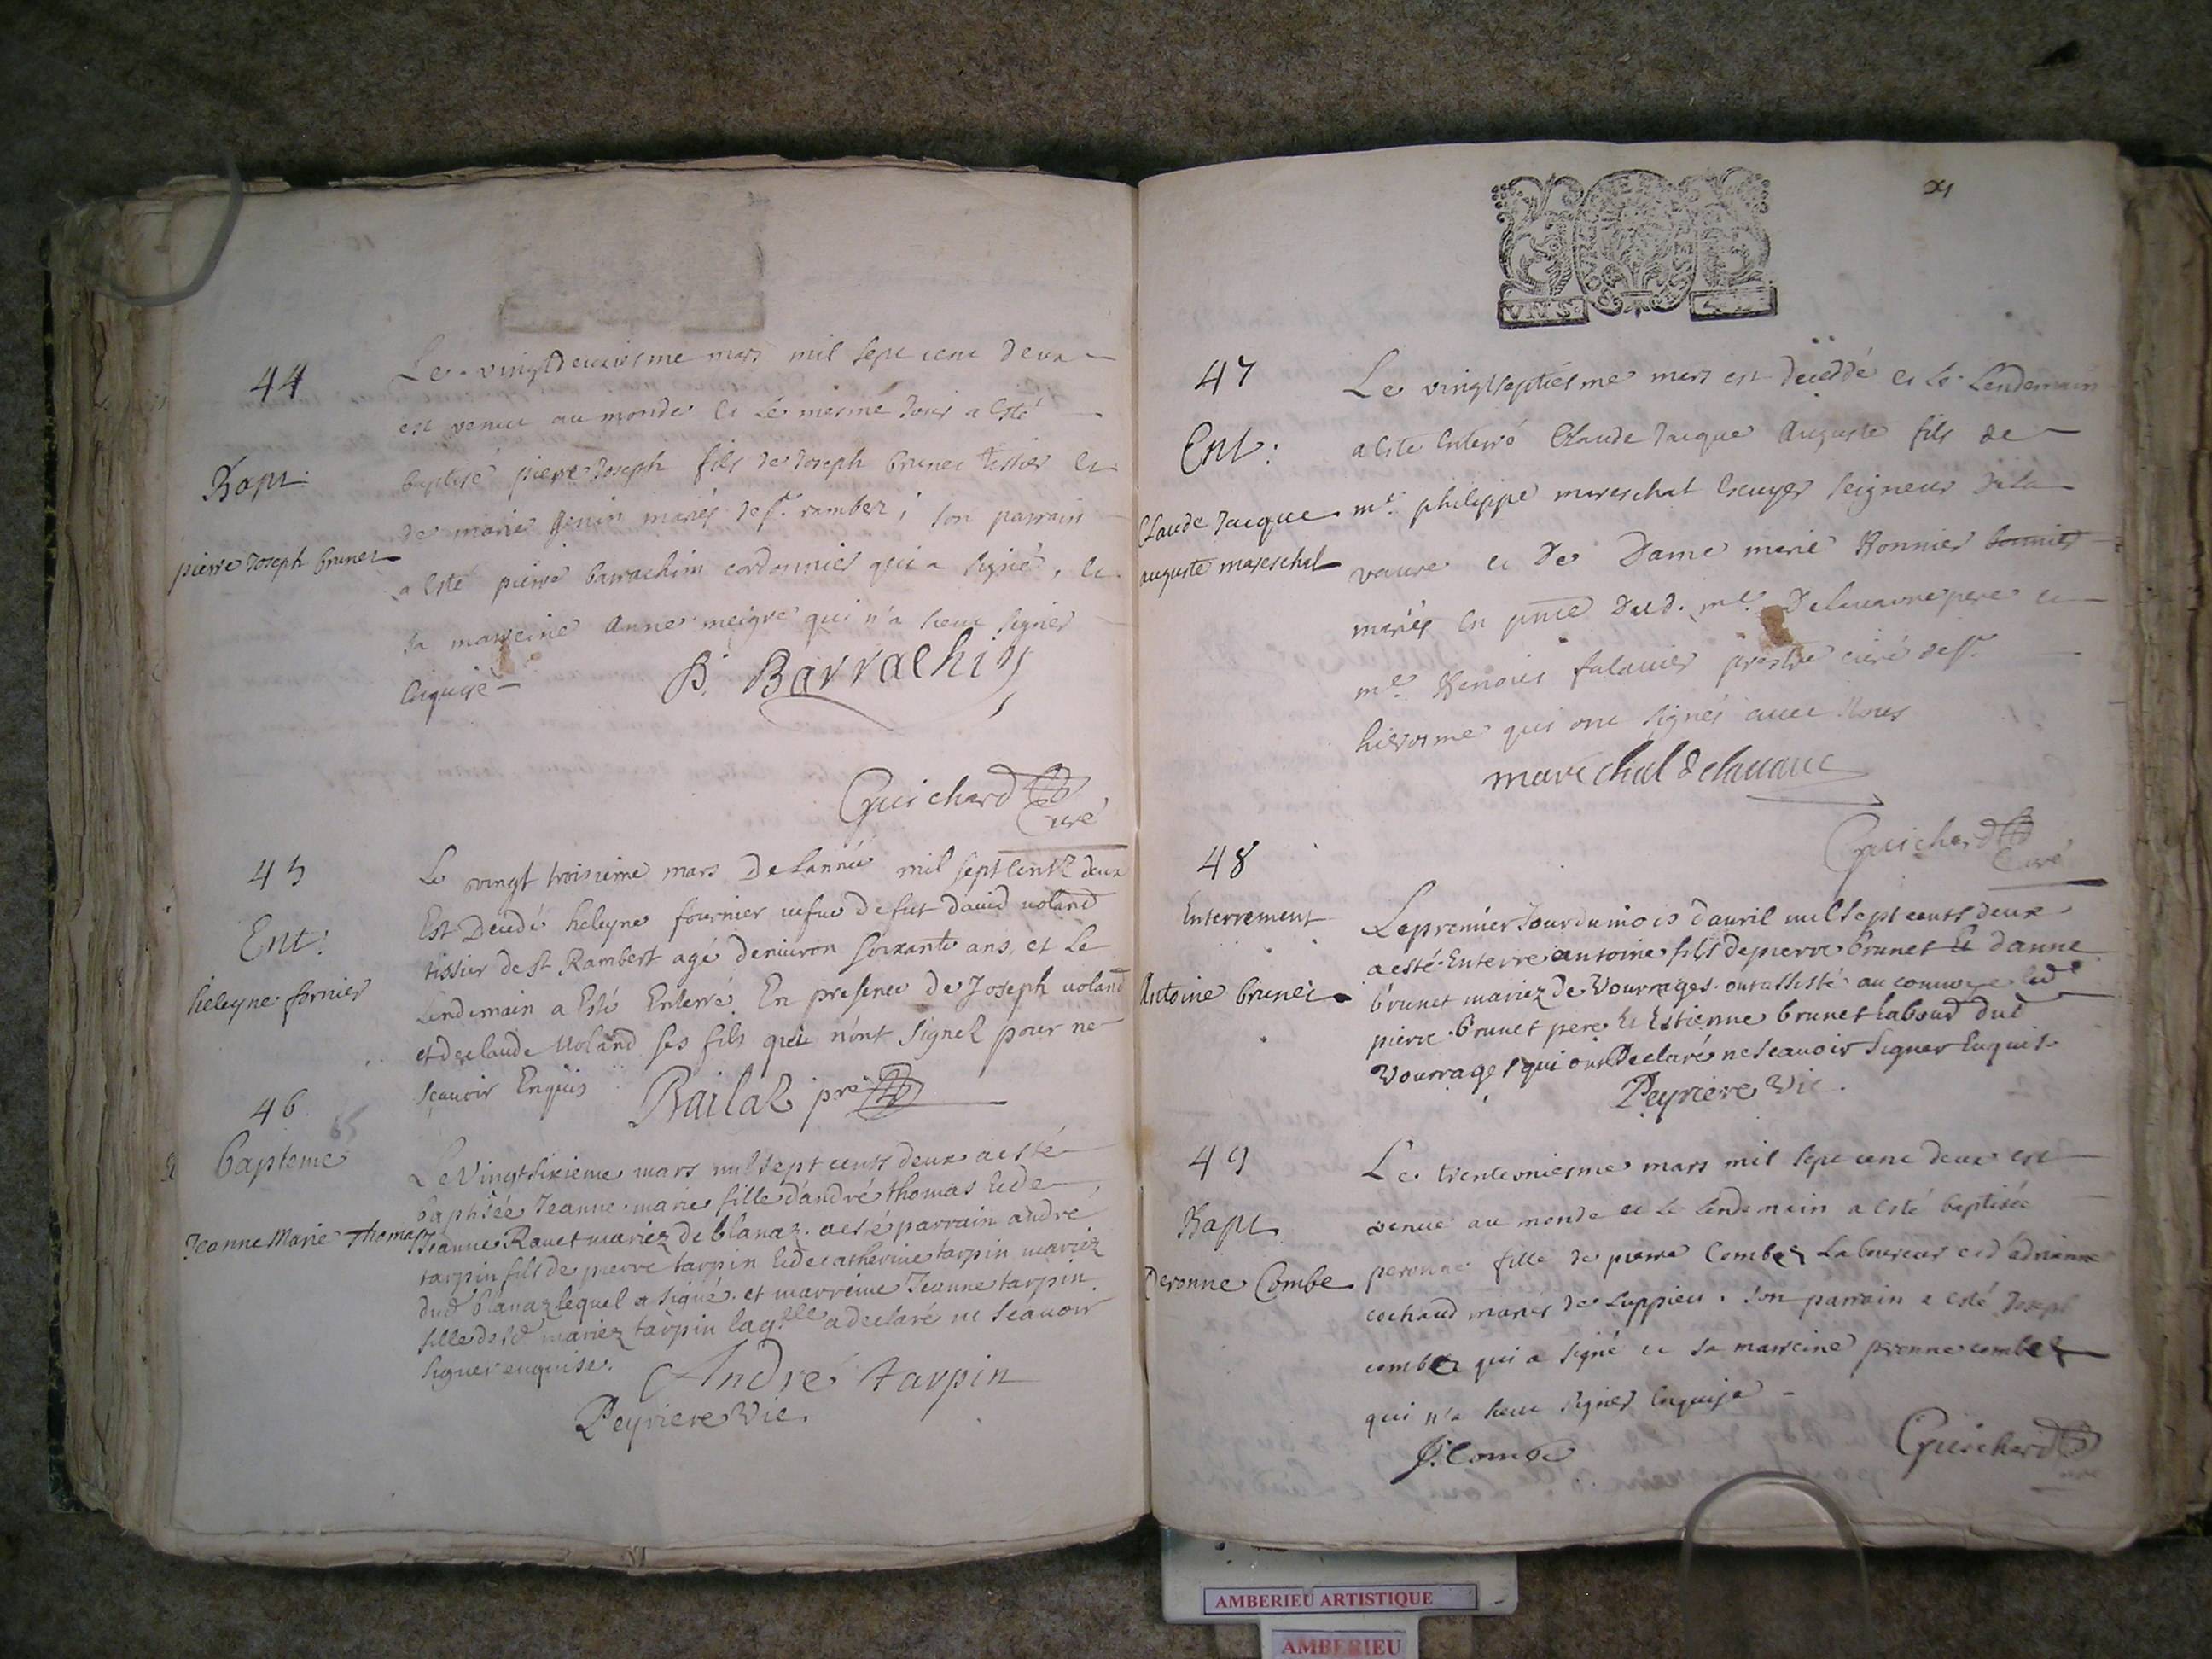 44
Bapt.
pierre Joseph brunet
Le vingtdeuxiesme mars mil sept cent deux
est venu au monde et le mesme Jour a esté
baptisé pierre Joseph fils de Joseph brunet tissier et
de marie Genin mariés de st. rambert, son parrain
a esté pierre barrachim cordonnier qui a signé, et
sa marreine Anne meigre qui n'a sceu signer
enquise
P. Barrachin
Guichard
Curé
45
Ent:
heleyne fornier
Le vingt troisieme mars De Lannée mil sept centz deux
Est Decedé heleyne fournier vefue de fut dauid uoland
tissier de st Rambert agé denuiron soixante ans, et le
Lendemain a Esté Enterré En presence de Joseph uoland
et de claude Uoland ses fils qui n'ont signez pour ne
sçauoir Enquis
Bailaz pre
46
65
bapteme
Jeanne Marie Thomas
Le Vingtsixieme mars mil sept cents deux a esté
baptisée Jeanne marie fille d'andré thomas et de
Jeanne Rauet mariez de blanaz. a esté parrain andré
tarpin fils de pierre tarpin et de catherine tarpin mariez
dud blanaz lequel a signé. et marreine Jeanne tarpin
fille desd mariez tarpin laqlle a declaré ne scauoir
signer enquise.
André tarpin
Peyriere Vic.
VN S.
47
Ent:
Claude Jacque
auguste mareschal
Le vingtseptiesme mars est deceddé et le Lendemain
a esté enterré Claude Jacque Auguste fils de
mre philippe mareschal Escuyer seigneur dela
vaure et De Dame marie Bonnier bonnier
mariés en pnce dud. mre Delauaure pere et
mre Benoit falauier prestre curé de st.
hierosme qui ont signés auec Nous
marechal delauaure
Guichard
Curé
48
Enterrement
Antoine brunet
Le premier Jour du mois d'auril mil sept cents deux
a esté Enterré antoine fils de pierre brunet Et danne
brunet mariez de Vourrages. ont assisté au conuoye led
pierre brunet pere Et Estienne brunet Labour dud
Vourrages qui ont Declaré ne scauoir signer Enquis.
Peyriere Vic.
49
Bapt
Peronne Combe
Le trenteuniesme mars mil sept cent deux est
venue au monde et le lendemain a esté baptisée
peronne fille de pierre Combe Laboureur et d'adrianne
cochaud mariés de Luppieu. son parrain a esté Joseph
combe qui a signé et sa marreine peronne combe
qui n'a sceu signer enquise
J. Combe
Guichard
AMBERIEU ARTISTIQUE
AMBERIEU